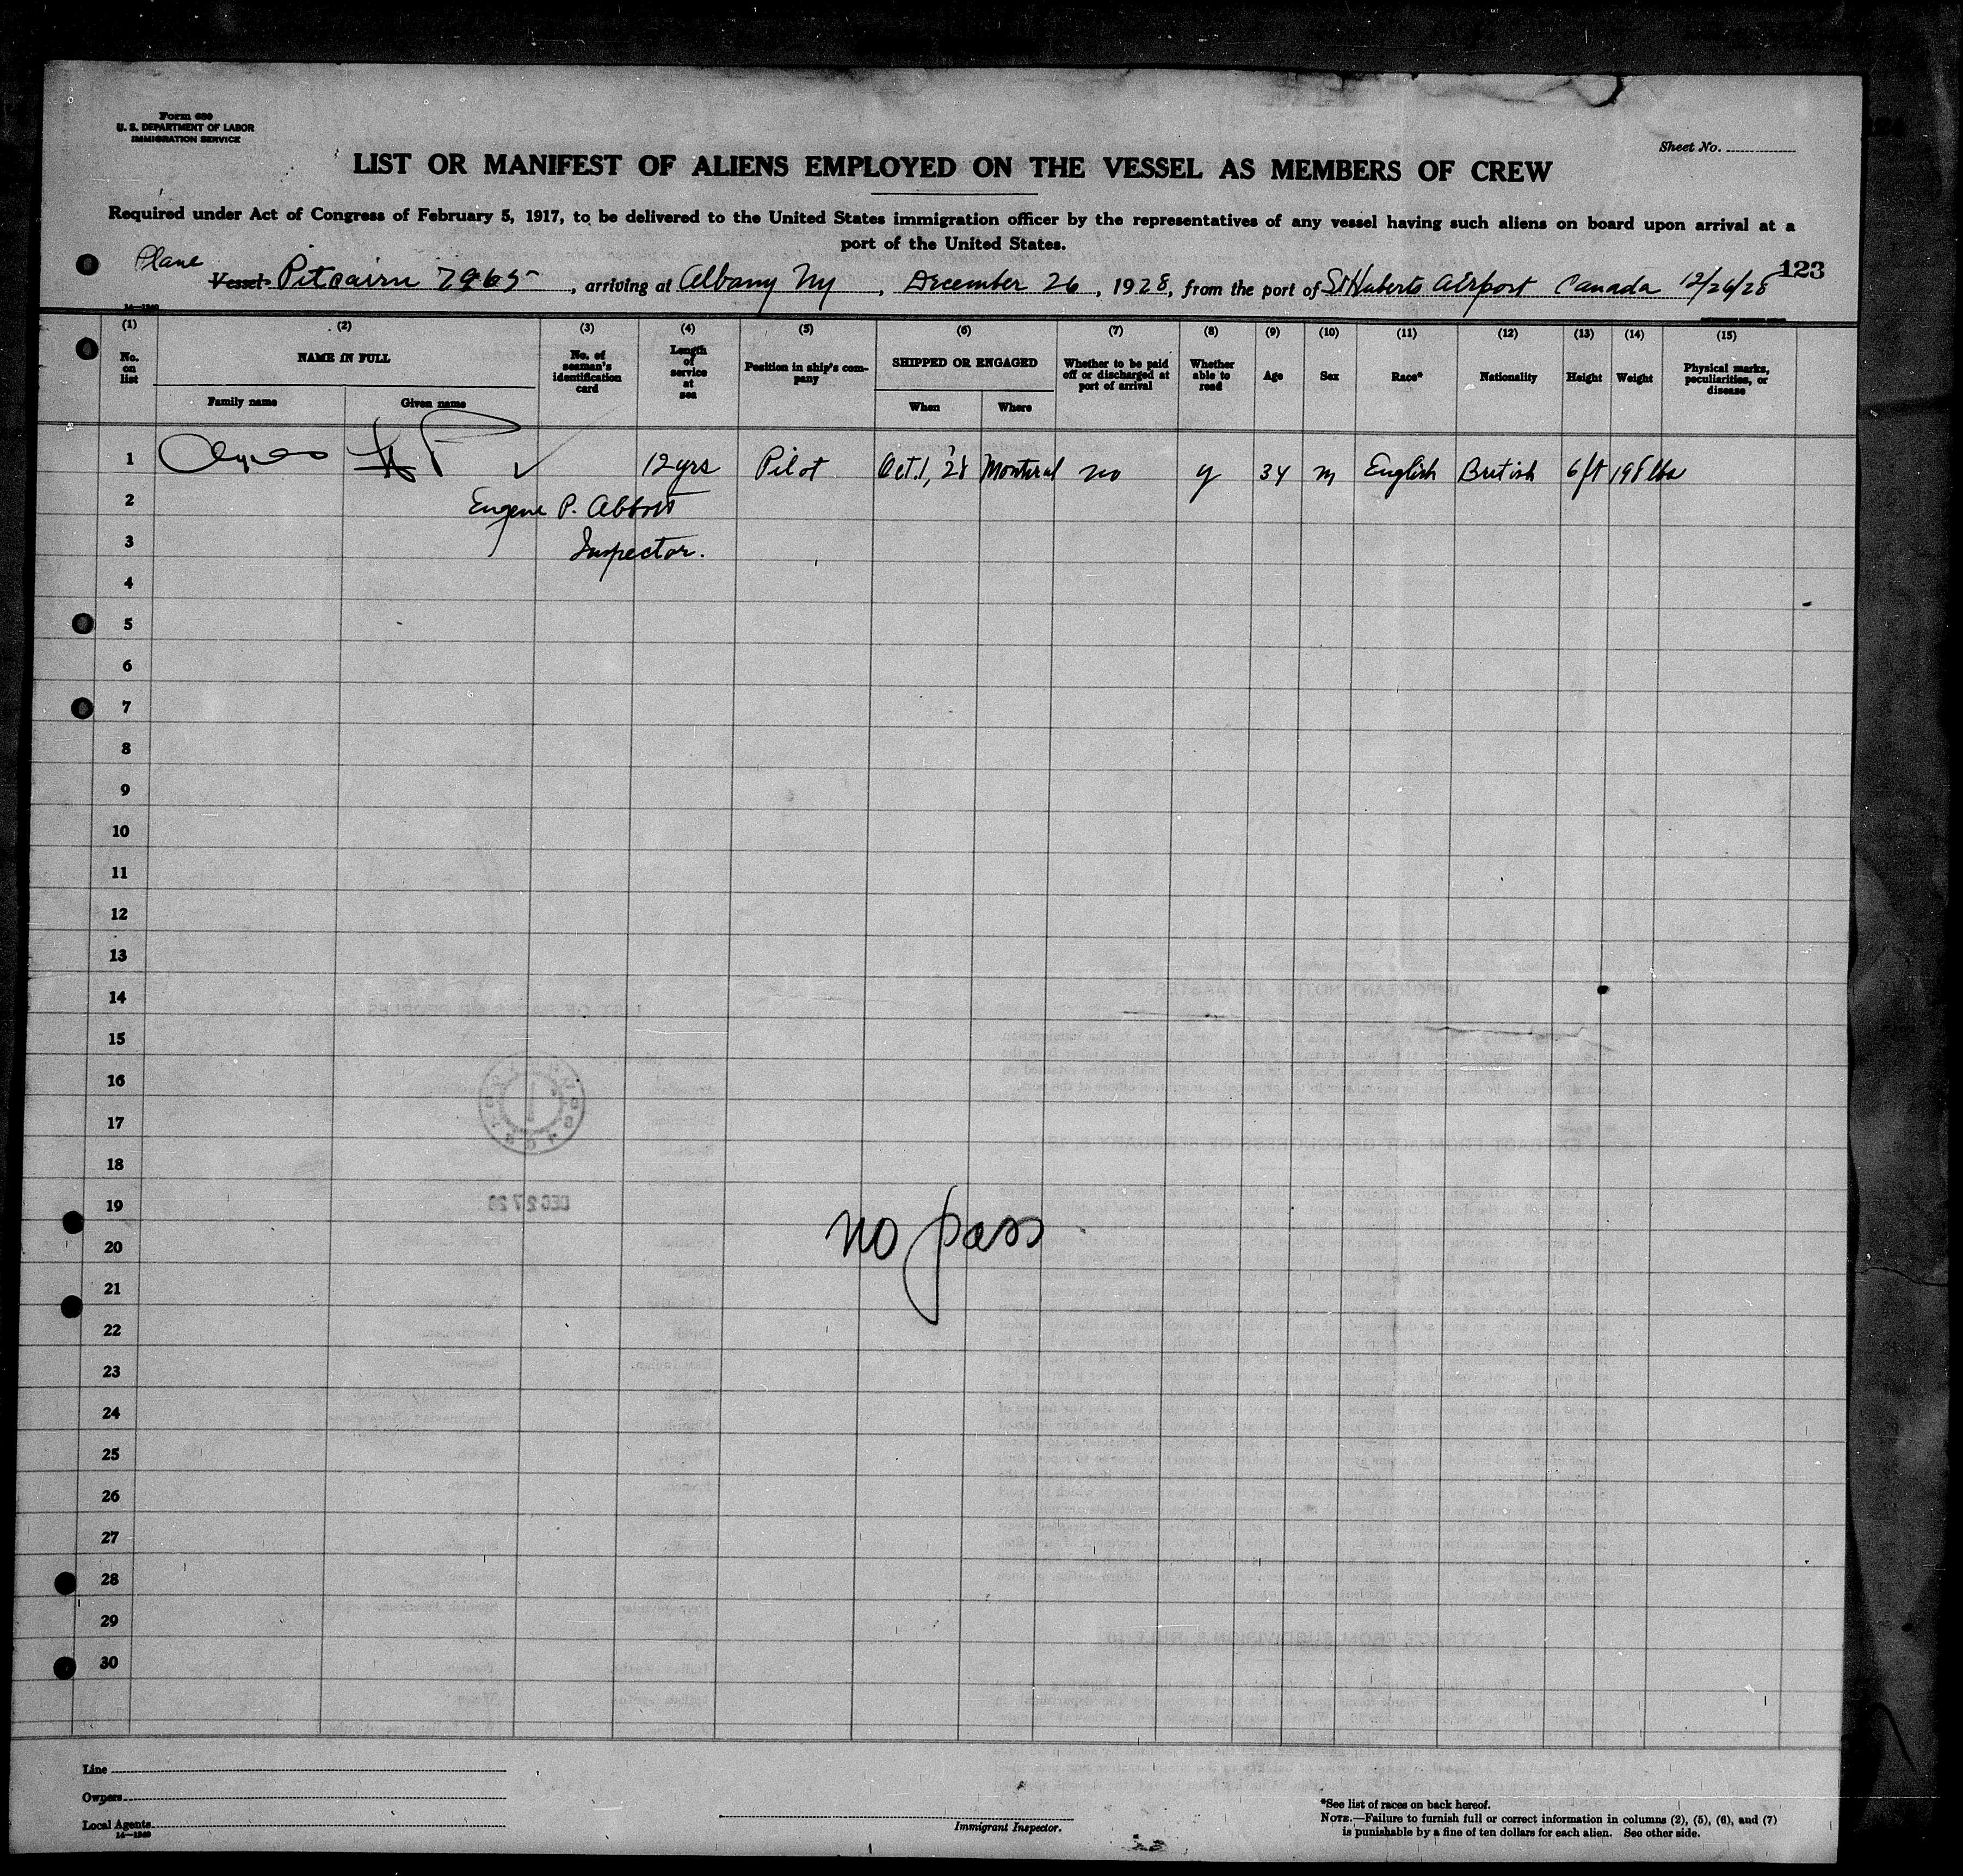 Form 680
U. S. DEPARTMENT OF LABOR
IMMIGRATION SERVICE
Sheet No.
LIST OR MANIFEST OF ALIENS EMPLOYED ON THE VESSEL AS MEMBERS OF CREW
Required under Act of Congress of February 5, 1917, to be delivered to the United States immigration officer by the representatives of any vessel having such aliens on board upon arrival at a
port of the United States.
Plane
123
Vessel Pitcairn 7965, arriving at Albany Ny, December 26, 1928, from the port of St Huberts Airport Canada 12/26/28
14—1240
(1) (2) (3) (4) (5) (6) (7) (8) (9) (10) (11) (12) (13) (14) (15)
No. on list
NAME IN FULL
Family name
Given name
No. of seaman's identification card
Length of service at sea
Position in ship's company
SHIPPED OR ENGAGED
When
Where
Whether to be paid off or discharged at port of arrival
Whether able to read
Age
Sex
Race*
Nationality
Height
Weight
Physical marks, peculiarities, or disease
1 12 yrs Pilot Oct. 1, '28 Montreal no y 34 m English British 6 ft 198 lbs
2 Eugene P. Abbott
3 Inspector.
4
5
6
7
8
9
10
11
12
13
14
15
16
17
18
19
no pass
20
21
22
23
24
25
26
27
28
29
30
Line
Owners
Local Agents
14—1240
Immigrant Inspector.
*See list of races on back hereof.
NOTE.—Failure to furnish full or correct information in columns (2), (5), (6), and (7)
is punishable by a fine of ten dollars for each alien. See other side.